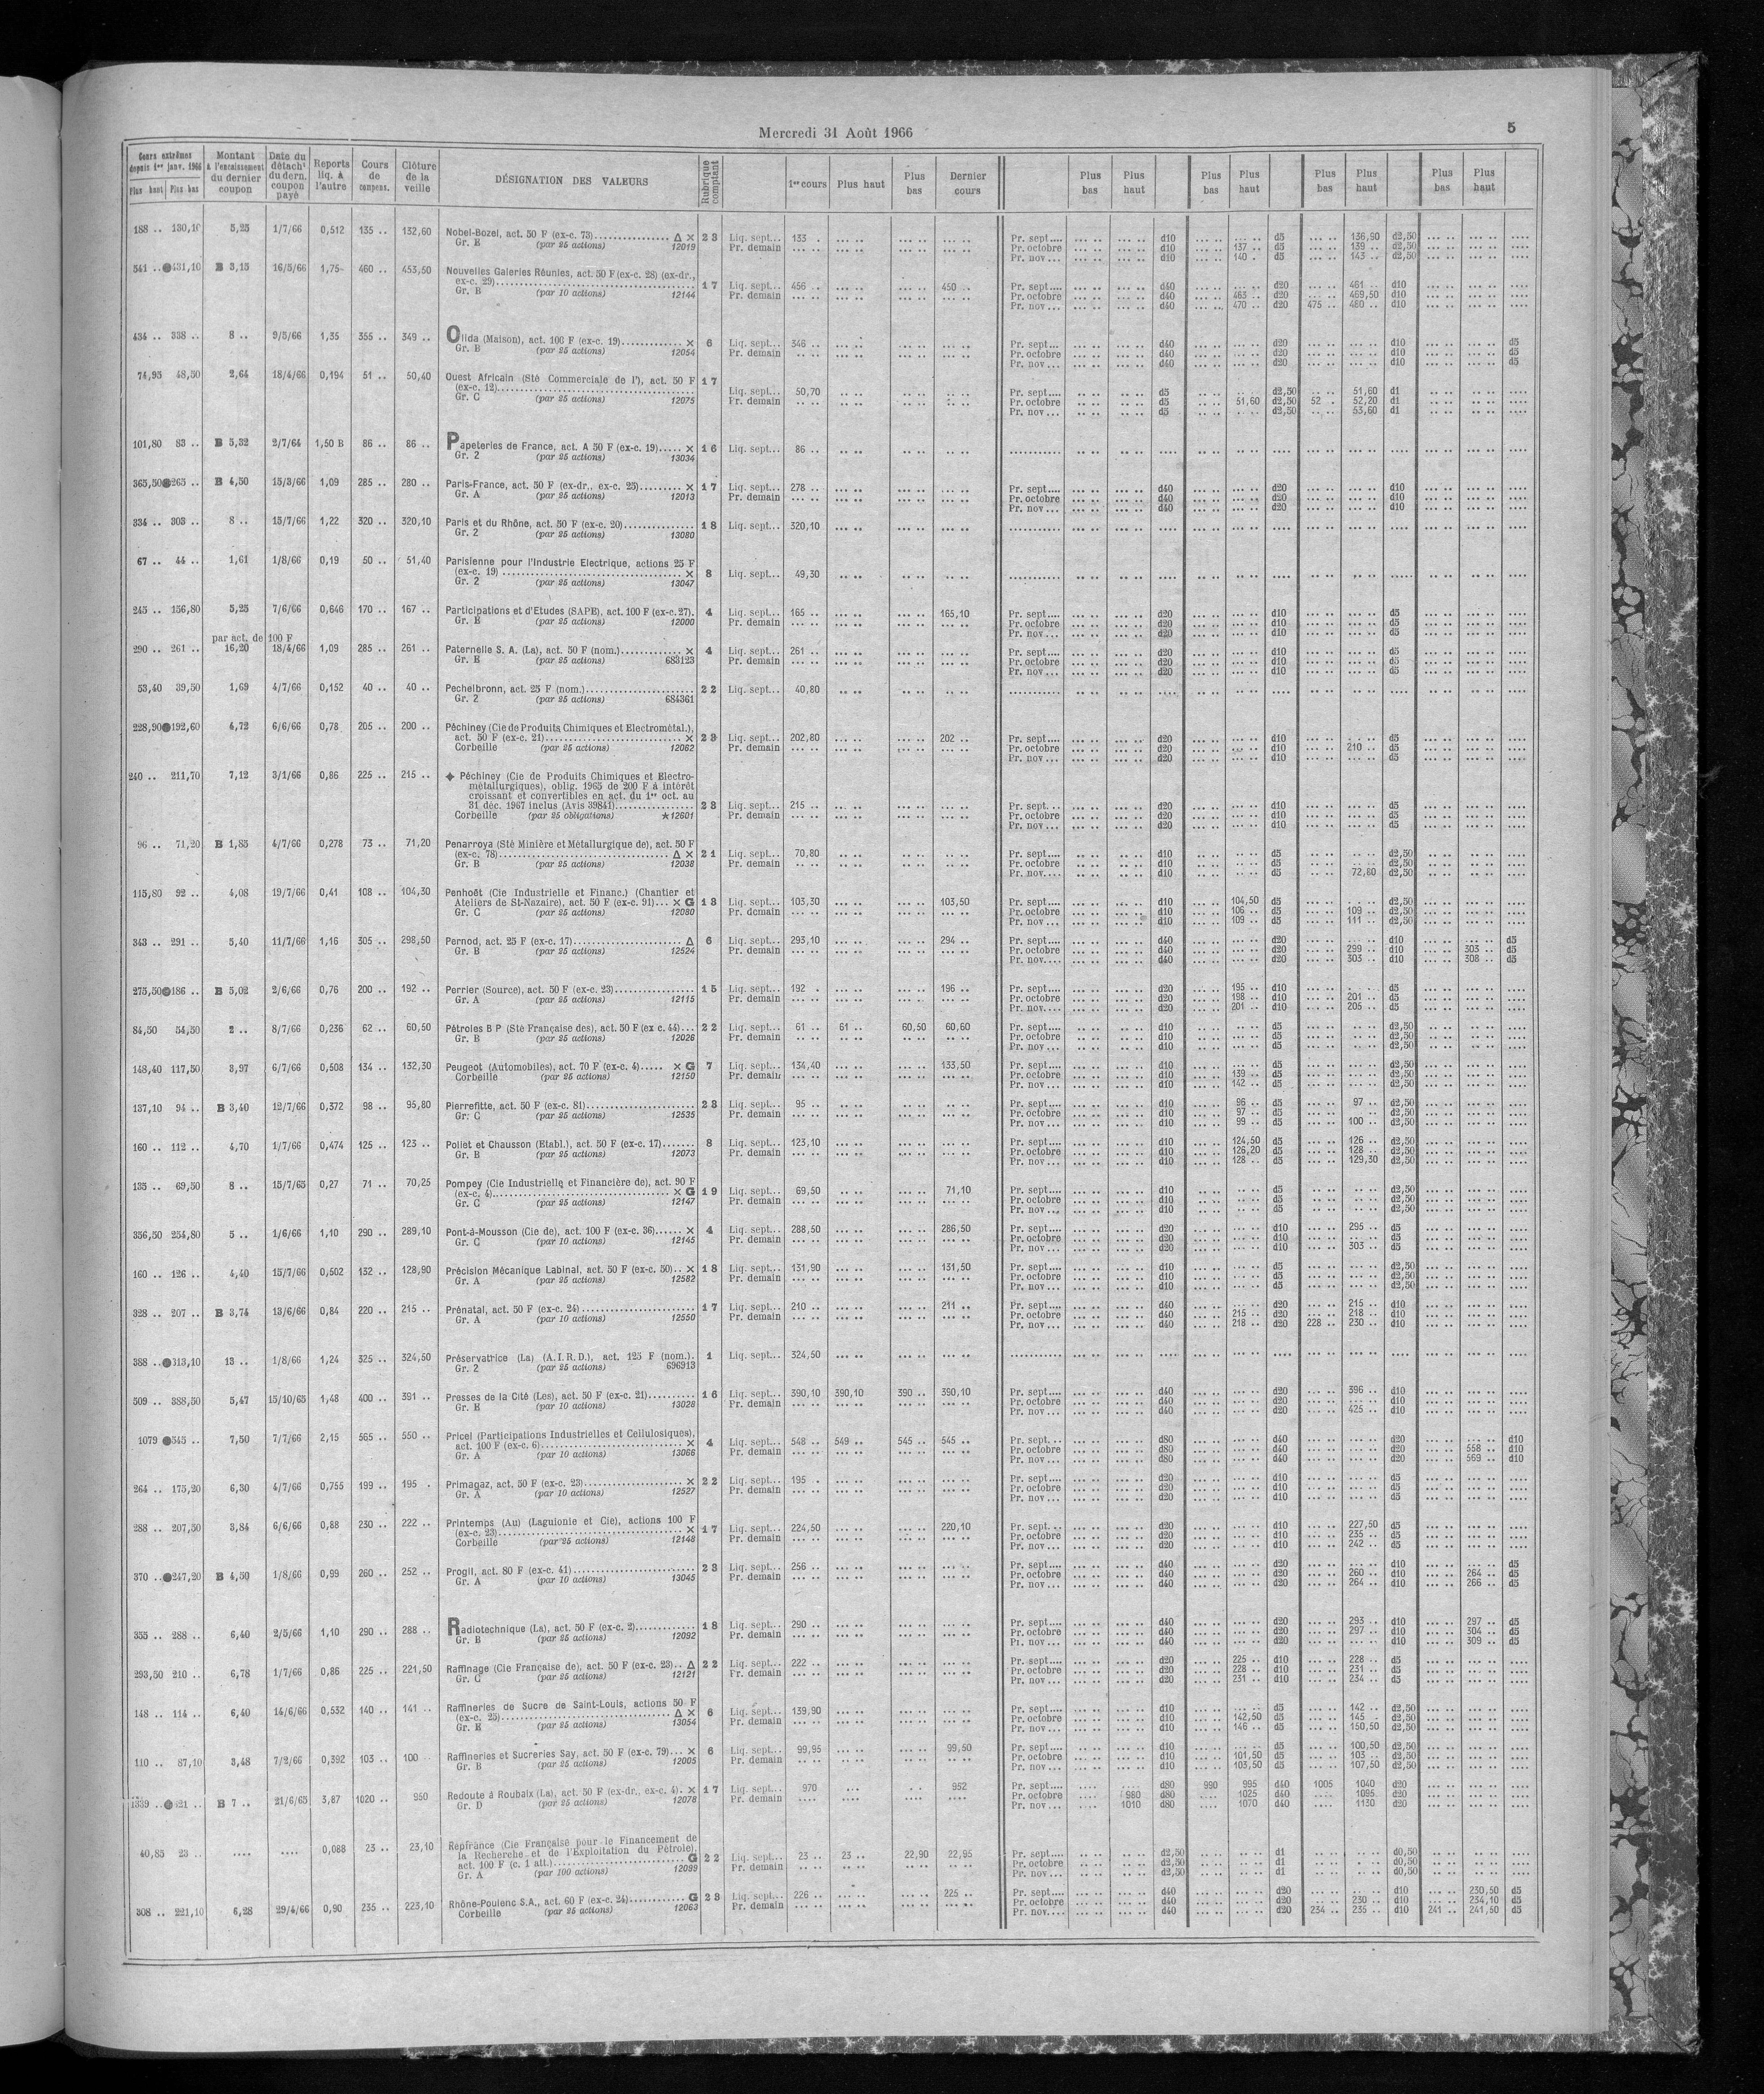 Mercredi 31 Août 1966
5
Cours extrêmes depuis 1er janv. 1966 Plus haut Plus bas | Montant à l'encaissement du dernier coupon | Date du détach¹ du dern. coupon payé | Reports liq. à l'autre | Cours de compens. | Clôture de la veille | DÉSIGNATION DES VALEURS | Rubrique comptant | 1er cours | Plus haut | Plus bas | Dernier cours | Plus bas | Plus haut | Plus bas | Plus haut | Plus bas | Plus haut | Plus bas | Plus haut
188 .. 130,10 5,25 1/7/66 0,512 135 .. 132,60 Nobel-Bozel, act. 50 F (ex-c. 73) Δ × 23 Liq. sept... 133 . Pr. sept.... d10 d5 136,90 d2,50
Gr. E (par 25 actions) 12019 Pr. demain Pr. octobre d10 137 .. d5 139 .. d2,50
Pr. nov... d10 140 . d5 143 .. d2,50
541 .. 431,10 B 3,15 16/5/66 1,75 460 .. 453,50 Nouvelles Galeries Réunies, act. 50 F (ex-c. 28) (ex-dr.,
ex-c. 29) 17 Liq. sept... 456 .. 450 .. Pr. sept.... d40 d20 461 .. d10
Gr. B (par 10 actions) 12144 Pr. demain Pr. octobre d40 463 .. d20 469,50 d10
Pr. nov... d40 470 .. d20 475 .. 480 .. d10
434 .. 338 .. 8 .. 9/5/66 1,35 355 .. 349 .. Olida (Maison), act. 100 F (ex-c. 19) × 6 Liq. sept... 346 .. Pr. sept.... d40 d20 d10 d5
Gr. B (par 25 actions) 12054 Pr. demain Pr. octobre d40 d20 d10 d5
Pr. nov... d40 d20 d10 d5
74,95 48,50 2,64 18/4/66 0,194 51 .. 50,40 Ouest Africain (Sté Commerciale de l'), act. 50 F 17
(ex-c. 12) Liq. sept... 50,70 Pr. sept.... d5 d2,50 51,60 d1
Gr. C (par 25 actions) 12075 Pr. demain Pr. octobre d5 51,60 d2,50 52 .. 52,20 d1
Pr. nov... d5 d2,50 53,60 d1
101,80 83 .. B 5,32 2/7/64 1,50 B 86 .. 86 .. Papeteries de France, act. A 50 F (ex-c. 19) × 16 Liq. sept... 86 ..
Gr. 2 (par 25 actions) 13034
365,50 265 .. B 4,50 15/3/66 1,09 285 .. 280 .. Paris-France, act. 50 F (ex-dr., ex-c. 25) × 17 Liq. sept... 278 .. Pr. sept.... d40 d20 d10
Gr. A (par 25 actions) 12013 Pr. demain Pr. octobre d40 d20 d10
Pr. nov... d40 d20 d10
334 .. 303 .. 8 .. 15/7/66 1,22 320 .. 320,10 Paris et du Rhône, act. 50 F (ex-c. 20) 18 Liq. sept... 320,10
Gr. 2 (par 25 actions) 13080
67 .. 44 .. 1,61 1/8/66 0,19 50 .. 51,40 Parisienne pour l'Industrie Electrique, actions 25 F
(ex-c. 19) × 8 Liq. sept... 49,30
Gr. 2 (par 25 actions) 13047
245 .. 156,80 5,25 7/6/66 0,646 170 .. 167 .. Participations et d'Etudes (SAPE), act. 100 F (ex-c. 27). 4 Liq. sept... 165 .. 165,10 Pr. sept.... d20 d10 d5
Gr. E (par 25 actions) 12000 Pr. demain Pr. octobre d20 d10 d5
Pr. nov... d20 d10 d5
par act. de 100 F
290 .. 261 .. 16,20 18/4/66 1,09 285 .. 261 .. Paternelle S. A. (La), act. 50 F (nom.) × 4 Liq. sept... 261 .. Pr. sept.... d20 d10 d5
Gr. E (par 25 actions) 683123 Pr. demain Pr. octobre d20 d10 d5
Pr. nov... d20 d10 d5
53,40 39,50 1,69 4/7/66 0,152 40 .. 40 .. Pechelbronn, act. 25 F (nom.) 22 Liq. sept... 40,80
Gr. 2 (par 25 actions) 684361
228,90 192,60 4,72 6/6/66 0,78 205 .. 200 .. Péchiney (Cie de Produits Chimiques et Electrométal.),
act. 50 F (ex-c. 21) × 23 Liq. sept... 202,80 202 .. Pr. sept.... d20 d10 d5
Corbeille (par 25 actions) 12062 Pr. demain Pr. octobre d20 d10 210 .. d5
Pr. nov... d20 d10 d5
240 .. 211,70 7,12 3/1/66 0,86 225 .. 215 .. ◆ Péchiney (Cie de Produits Chimiques et Electro-
métallurgiques), oblig. 1965 de 200 F à intérêt
croissant et convertibles en act. du 1er oct. au
31 déc. 1967 inclus (Avis 39841) 23 Liq. sept... 215 .. Pr. sept... d20 d10 d5
Corbeille (par 25 obligations) ★12601 Pr. demain Pr. octobre d20 d10 d5
Pr. nov... d20 d10 d5
96 .. 71,20 B 1,85 4/7/66 0,278 73 .. 71,20 Penarroya (Sté Minière et Métallurgique de), act. 50 F
(ex-c. 78) Δ × 21 Liq. sept... 70,80 Pr. sept.... d10 d5 d2,50
Gr. B (par 25 actions) 12038 Pr. demain Pr. octobre d10 d5 d2,50
Pr. nov.... d10 d5 72,80 d2,50
115,80 92 .. 4,08 19/7/66 0,41 108 .. 104,30 Penhoët (Cie Industrielle et Financ.) (Chantier et
Ateliers de St-Nazaire), act. 50 F (ex-c. 91)... × G 18 Liq. sept... 103,30 103,50 Pr. sept.... d10 104,50 d5 d2,50
Gr. C (par 25 actions) 12080 Pr. demain Pr. octobre d10 106 .. d5 109 .. d2,50
Pr. nov... d10 109 .. d5 111 .. d2,50
343 .. 291 .. 5,40 11/7/66 1,16 305 .. 298,50 Pernod, act. 25 F (ex-c. 17) Δ 6 Liq. sept... 293,10 294 .. Pr. sept.... d40 d20 d10 d5
Gr. B (par 25 actions) 12524 Pr. demain Pr. octobre d40 d20 299 .. d10 303 .. d5
Pr. nov.... d40 d20 303 .. d10 308 .. d5
275,50 186 .. B 5,02 2/6/66 0,76 200 .. 192 .. Perrier (Source), act. 50 F (ex-c. 23) 15 Liq. sept... 192 . 196 .. Pr. sept.... d20 195 .. d10 d5
Gr. A (par 25 actions) 12115 Pr. demain Pr. octobre d20 198 .. d10 201 .. d5
Pr. nov.... d20 201 .. d10 205 .. d5
84,50 54,50 2 .. 8/7/66 0,236 62 .. 60,50 Pétroles B P (Sté Française des), act. 50 F (ex c. 44)... 22 Liq. sept... 61 .. 61 .. 60,50 60,60 Pr. sept.... d10 d5 d2,50
Gr. B (par 25 actions) 12026 Pr. demain Pr. octobre d10 d5 d2,50
Pr. nov... d10 d5 d2,50
148,40 117,50 3,97 6/7/66 0,508 134 .. 132,30 Peugeot (Automobiles), act. 70 F (ex-c. 4)..... × G 7 Liq. sept... 134,40 133,50 Pr. sept.... d10 d5 d2,50
Corbeille (par 25 actions) 12150 Pr. demain Pr. octobre d10 139 .. d5 d2,50
Pr. nov... d10 142 .. d5 d2,50
137,10 94 .. B 3,40 12/7/66 0,372 98 .. 95,80 Pierrefitte, act. 50 F (ex-c. 81) 23 Liq. sept... 95 .. Pr. sept.... d10 96 .. d5 97 .. d2,50
Gr. C (par 25 actions) 12535 Pr. demain Pr. octobre d10 97 .. d5 d2,50
Pr. nov... d10 99 .. d5 100 .. d2,50
160 .. 112 .. 4,70 1/7/66 0,474 125 .. 123 .. Poliet et Chausson (Etabl.), act. 50 F (ex-c. 17)....... 8 Liq. sept... 123,10 Pr. sept.... d10 124,50 d5 126 .. d2,50
Gr. B (par 25 actions) 12073 Pr. demain Pr. octobre d10 126,20 d5 128 .. d2,50
Pr. nov... d10 128 .. d5 129,30 d2,50
135 .. 69,50 8 .. 15/7/65 0,27 71 .. 70,25 Pompey (Cie Industrielle et Financière de), act. 90 F
(ex-c. 4) × G 19 Liq. sept... 69,50 71,10 Pr. sept.... d10 d5 d2,50
Gr. C (par 25 actions) 12147 Pr. demain Pr. octobre d10 d5 d2,50
Pr. nov... d10 d5 d2,50
356,50 254,80 5 .. 1/6/66 1,10 290 .. 289,10 Pont-à-Mousson (Cie de), act. 100 F (ex-c. 36)...... × 4 Liq. sept... 288,50 286,50 Pr. sept.... d20 d10 295 .. d5
Gr. C (par 10 actions) 12145 Pr. demain Pr. octobre d20 d10 d5
Pr. nov... d20 d10 303 .. d5
160 .. 126 .. 4,40 15/7/66 0,502 132 .. 128,90 Précision Mécanique Labinal, act. 50 F (ex-c. 50).. × 18 Liq. sept... 131,90 131,50 Pr. sept.... d10 d5 d2,50
Gr. A (par 25 actions) 12582 Pr. demain Pr. octobre d10 d5 d2,50
Pr. nov... d10 d5 d2,50
328 .. 207 .. B 3,74 13/6/66 0,84 220 .. 215 .. Prénatal, act. 50 F (ex-c. 24) 17 Liq. sept... 210 .. 211 .. Pr. sept.... d40 d20 215 .. d10
Gr. A (par 10 actions) 12550 Pr. demain Pr. octobre d40 215 .. d20 218 .. d10
Pr. nov... d40 218 .. d20 228 .. 230 .. d10
388 .. 313,10 13 .. 1/8/66 1,24 325 .. 324,50 Préservatrice (La) (A.I.R.D.), act. 125 F (nom.). 1 Liq. sept... 324,50
Gr. 2 (par 25 actions) 696913
509 .. 388,50 5,47 15/10/65 1,48 400 .. 391 .. Presses de la Cité (Les), act. 50 F (ex-c. 21) 16 Liq. sept... 390,10 390,10 390 .. 390,10 Pr. sept.... d40 d20 396 .. d10
Gr. E (par 10 actions) 13028 Pr. demain Pr. octobre d40 d20 d10
Pr. nov... d40 d20 425 .. d10
1079 545 .. 7,50 7/7/66 2,15 565 .. 550 .. Pricel (Participations Industrielles et Cellulosiques),
act. 100 F (ex-c. 6) × 4 Liq. sept... 548 .. 549 .. 545 .. 545 .. Pr. sept.... d80 d40 d20 d10
Gr. A (par 10 actions) 13066 Pr. demain Pr. octobre d80 d40 d20 558 .. d10
Pr. nov... d80 d40 d20 569 .. d10
264 .. 175,20 6,30 4/7/66 0,755 199 .. 195 . Primagaz, act. 50 F (ex-c. 23) × 22 Liq. sept... 195 . Pr. sept.... d20 d10 d5
Gr. A (par 10 actions) 12527 Pr. demain Pr. octobre d20 d10 d5
Pr. nov... d20 d10 d5
288 .. 207,50 3,84 6/6/66 0,88 230 .. 222 .. Printemps (Au) (Laguionie et Cie), actions 100 F
(ex-c. 23) × 17 Liq. sept... 224,50 220,10 Pr. sept... d20 d10 227,50 d5
Corbeille (par 25 actions) 12148 Pr. demain Pr. octobre d20 d10 235 .. d5
Pr. nov... d20 d10 242 .. d5
370 .. 247,20 B 4,50 1/8/66 0,99 260 .. 252 .. Progil, act. 80 F (ex-c. 41) 23 Liq. sept... 256 .. Pr. sept.... d40 d20 d10 d5
Gr. A (par 10 actions) 13045 Pr. demain Pr. octobre d40 d20 260 .. d10 264 .. d5
Pr. nov... d40 d20 264 .. d10 266 .. d5
355 .. 288 .. 6,40 2/5/66 1,10 290 .. 288 .. Radiotechnique (La), act. 50 F (ex-c. 2) 18 Liq. sept... 290 .. Pr. sept.... d40 d20 293 .. d10 297 .. d5
Gr. B (par 25 actions) 12092 Pr. demain Pr. octobre d40 d20 297 .. d10 304 .. d5
Pr. nov... d40 d20 d10 309 .. d5
293,50 210 .. 6,78 1/7/66 0,86 225 .. 221,50 Raffinage (Cie Française de), act. 50 F (ex-c. 23).. Δ 22 Liq. sept... 222 .. Pr. sept.... d20 225 .. d10 228 .. d5
Gr. C (par 25 actions) 12121 Pr. demain Pr. octobre d20 228 .. d10 231 .. d5
Pr. nov... d20 231 .. d10 234 .. d5
148 .. 114 .. 6,40 14/6/66 0,532 140 .. 141 .. Raffineries de Sucre de Saint-Louis, actions 50 F
(ex-c. 25) Δ × 6 Liq. sept... 139,90 Pr. sept.... d10 d5 142 .. d2,50
Gr. E (par 25 actions) 13054 Pr. demain Pr. octobre d10 142,50 d5 145 .. d2,50
Pr. nov... d10 146 .. d5 150,50 d2,50
110 .. 87,10 3,48 7/2/66 0,392 103 .. 100 .. Raffineries et Sucreries Say, act. 50 F (ex-c. 79)... × 6 Liq. sept... 99,95 99,50 Pr. sept.... d10 d5 100,50 d2,50
Gr. B (par 25 actions) 12005 Pr. demain Pr. octobre d10 101,50 d5 103 .. d2,50
Pr. nov... d10 103,50 d5 107,50 d2,50
1339 .. 921 .. B 7 .. 21/6/65 3,87 1020 .. 950 Redoute à Roubaix (La), act. 50 F (ex-dr., ex-c. 4). × 17 Liq. sept... 970 952 Pr. sept.... d80 990 995 d40 1005 1040 d20
Gr. D (par 25 actions) 12078 Pr. demain Pr. octobre 980 d80 1025 d40 1095 d20
Pr. nov... 1010 d80 1070 d40 1130 d20
40,85 23 .. .... .... 0,088 23 .. 23,10 Repfrance (Cie Française pour le Financement de
la Recherche et de l'Exploitation du Pétrole),
act. 100 F (c. 1 att.) G 22 Liq. sept... 23 .. 23 .. 22,90 22,95 Pr. sept.... d2,50 d1 d0,50
Gr. A (par 100 actions) 12099 Pr. demain Pr. octobre d2,50 d1 d0,50
Pr. nov... d2,50 d1 d0,50
308 .. 221,10 6,28 29/4/66 0,90 235 .. 223,10 Rhône-Poulenc S.A., act. 60 F (ex-c. 24) G 23 Liq. sept... 226 .. 225 .. Pr. sept.... d40 d20 d10 230,50 d5
Corbeille (par 25 actions) 12063 Pr. demain Pr. octobre d40 d20 230 .. d10 234,10 d5
Pr. nov.... d40 d20 234 .. 235 .. d10 241 .. 241,50 d5